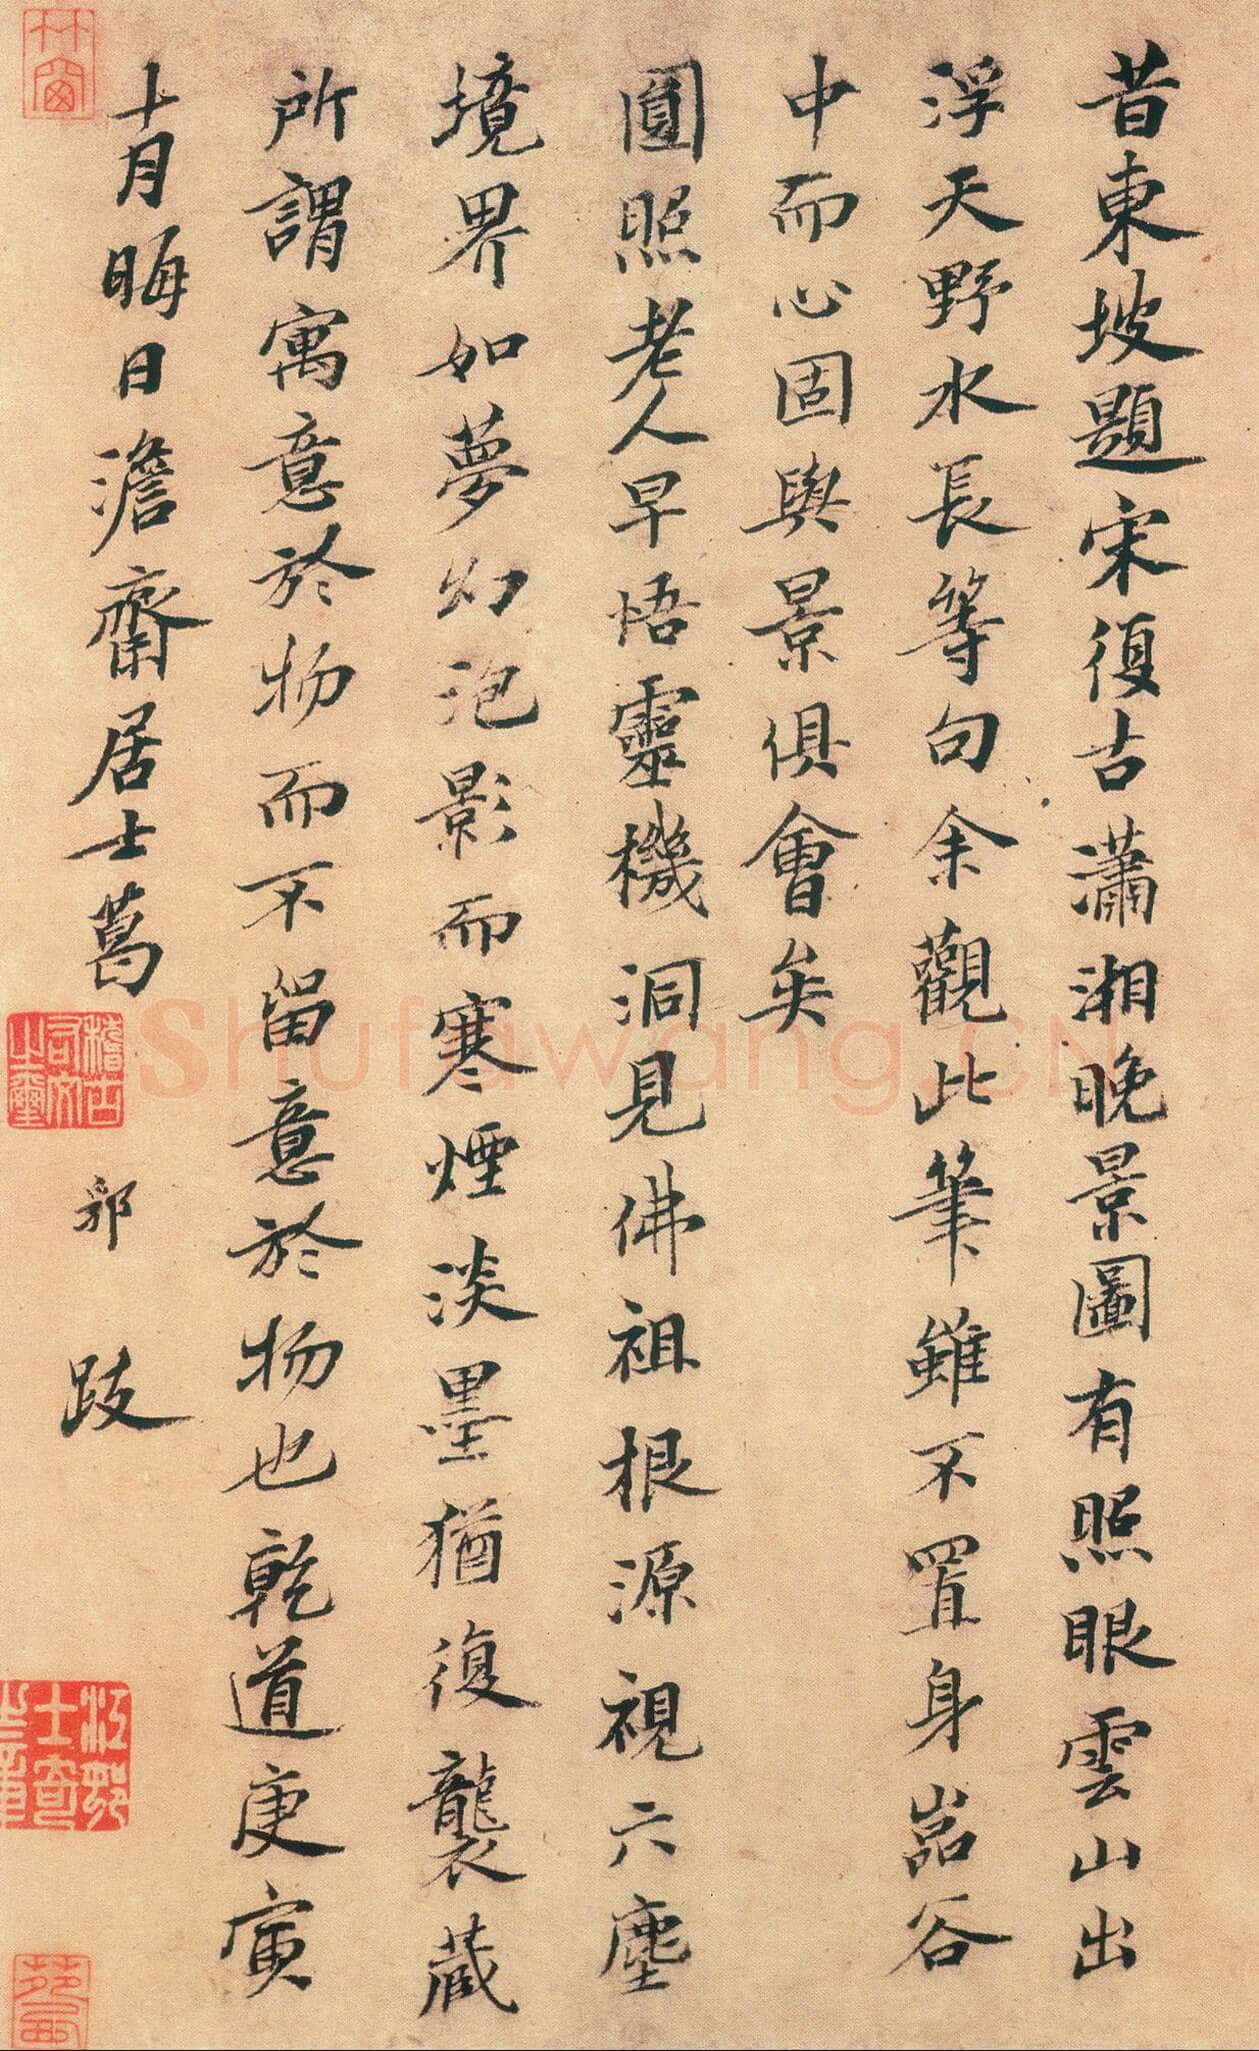 昔東坡題宋復古瀟湘晚景圖有照眼雲山出
浮天野水長等句余觀此筆雖不置身嵓谷
中而心固與景俱會矣
圓照老人早悟靈機洞見佛祖根源視六塵
境界如夢幻泡影而寒煙淡墨猶復襲藏
所謂寓意於物而不留意於物也乾道庚寅
十月晦日澹齋居士葛
郛
跋
Shufawang.CN